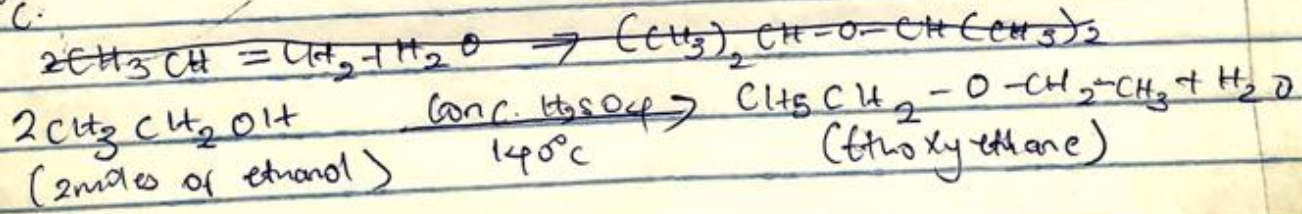 C.
2CH3CH = CH2 + H2O → (CH3)2 CH-O-CH(CH3)2
2CH3CH2OH Conc. H2SO4 → CH5CH2-O-CH2-CH3 + H2O
140°C
(2moles of ethanol) (Ethoxyethane)